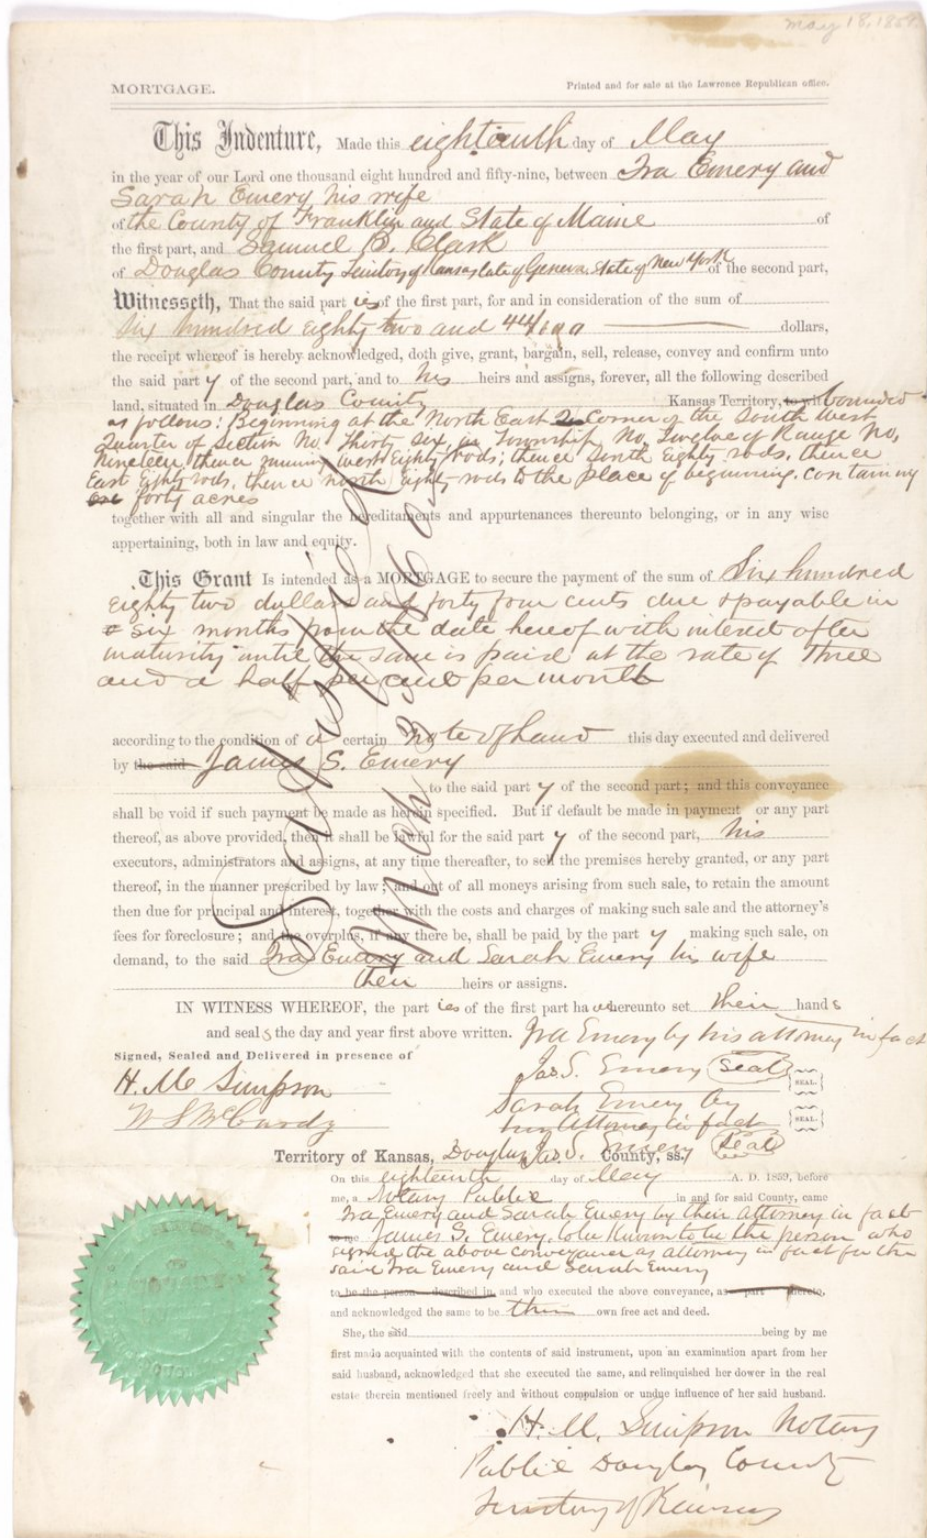 May 18, 1859.
MORTGAGE. Printed and for sale at the Lawrence Republican office.
This Indenture, Made this eighteenth day of May
in the year of our Lord one thousand eight hundred and fifty-nine, between Ira Emery and
Sarah Emery his wife
of the County of Franklin and State of Maine of
the first part, and Samuel B. Clark
of Douglas County Territory of Kansas late of Geneva State of New York of the second part,
Witnesseth, That the said part ies of the first part, for and in consideration of the sum of
Six hundred eighty two and 44/100 dollars,
the receipt whereof is hereby acknowledged, doth give, grant, bargain, sell, release, convey and confirm unto
the said part y of the second part, and to his heirs and assigns, forever, all the following described
land, situated in Douglas County Kansas Territory, to wit bounded
as follows: Beginning at the North East Corner of the South West
Quarter of Section No. Thirty six, in Township No. Twelve of Range No.
Nineteen, thence running west Eighty rods; thence South Eighty rods, thence
East Eighty rods, thence north Eighty rods to the place of beginning. containing
forty acres
together with all and singular the hereditaments and appurtenances thereunto belonging, or in any wise
appertaining, both in law and equity.
This Grant Is intended as a MORTGAGE to secure the payment of the sum of Six hundred
Eighty two dollars and forty four cents due & payable in
six months from the date hereof with interest after
maturity until the same is paid at the rate of three
and a half per cent per month
according to the condition of a certain note of hand this day executed and delivered
by the said James S. Emery
to the said part y of the second part; and this conveyance
shall be void if such payment be made as herein specified. But if default be made in payment or any part
thereof, as above provided, then it shall be lawful for the said part y of the second part, his
executors, administrators and assigns, at any time thereafter, to sell the premises hereby granted, or any part
thereof, in the manner prescribed by law; and out of all moneys arising from such sale, to retain the amount
then due for principal and interest, together with the costs and charges of making such sale and the attorney's
fees for foreclosure; and the overplus, if any there be, shall be paid by the part y making such sale, on
demand, to the said Ira Emery and Sarah Emery his wife
their heirs or assigns.
IN WITNESS WHEREOF, the part ies of the first part ha ve hereunto set their hand s
and seal s the day and year first above written. Ira Emery by his attorney in fact
Signed, Sealed and Delivered in presence of
H. M. Simpson Jas. S. Emery Seal SEAL.
Sarah Emery by
her Attorney in fact SEAL.
Jas. S. Emery Seal
Territory of Kansas, Douglas County, ss.
On this eighteenth day of May A. D. 1859, before
me, a Notary Public in and for said County, came
Ira Emery and Sarah Emery by their Attorney in fact
to me James S. Emery, to be known to be the person who
signed the above conveyance as attorney in fact for the
said Ira Emery and Sarah Emery
to be the person described in and who executed the above conveyance, as part thereto,
and acknowledged the same to be their own free act and deed.
She, the said being by me
first made acquainted with the contents of said instrument, upon an examination apart from her
said husband, acknowledged that she executed the same, and relinquished her dower in the real
estate therein mentioned freely and without compulsion or undue influence of her said husband.
H. M. Simpson Notary
Public Douglas County
Territory of Kansas